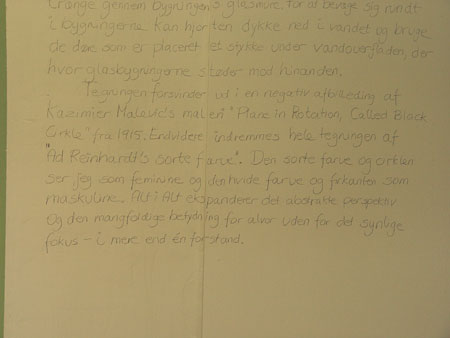 trænge gennem bygningens glasmure. For at bevæge sig rundt
i bygningerne kan hjorten dykke ned i vandet og bruge
de døre som er placeret et stykke under vandoverfladen, der
hvor glasbygningerne støder mod hinanden.
Tegningen forsvinder ud i en negativ afbilleding af
Kazimier Malevic's maleri "Plane in Rotation, Called Black
Cirkle" fra 1915. Endvidere indremmes hele tegningen af
"Ad Reinhardt's sorte farve". Den sorte farve og cirklen
ser jeg som feminine og den hvide farve og firkanten som
maskuline. Alt i Alt ekspanderer det abstrakte perspektiv
og den mangfoldige betydning for alvor uden for det synlige
fokus - i mere end én forstand.